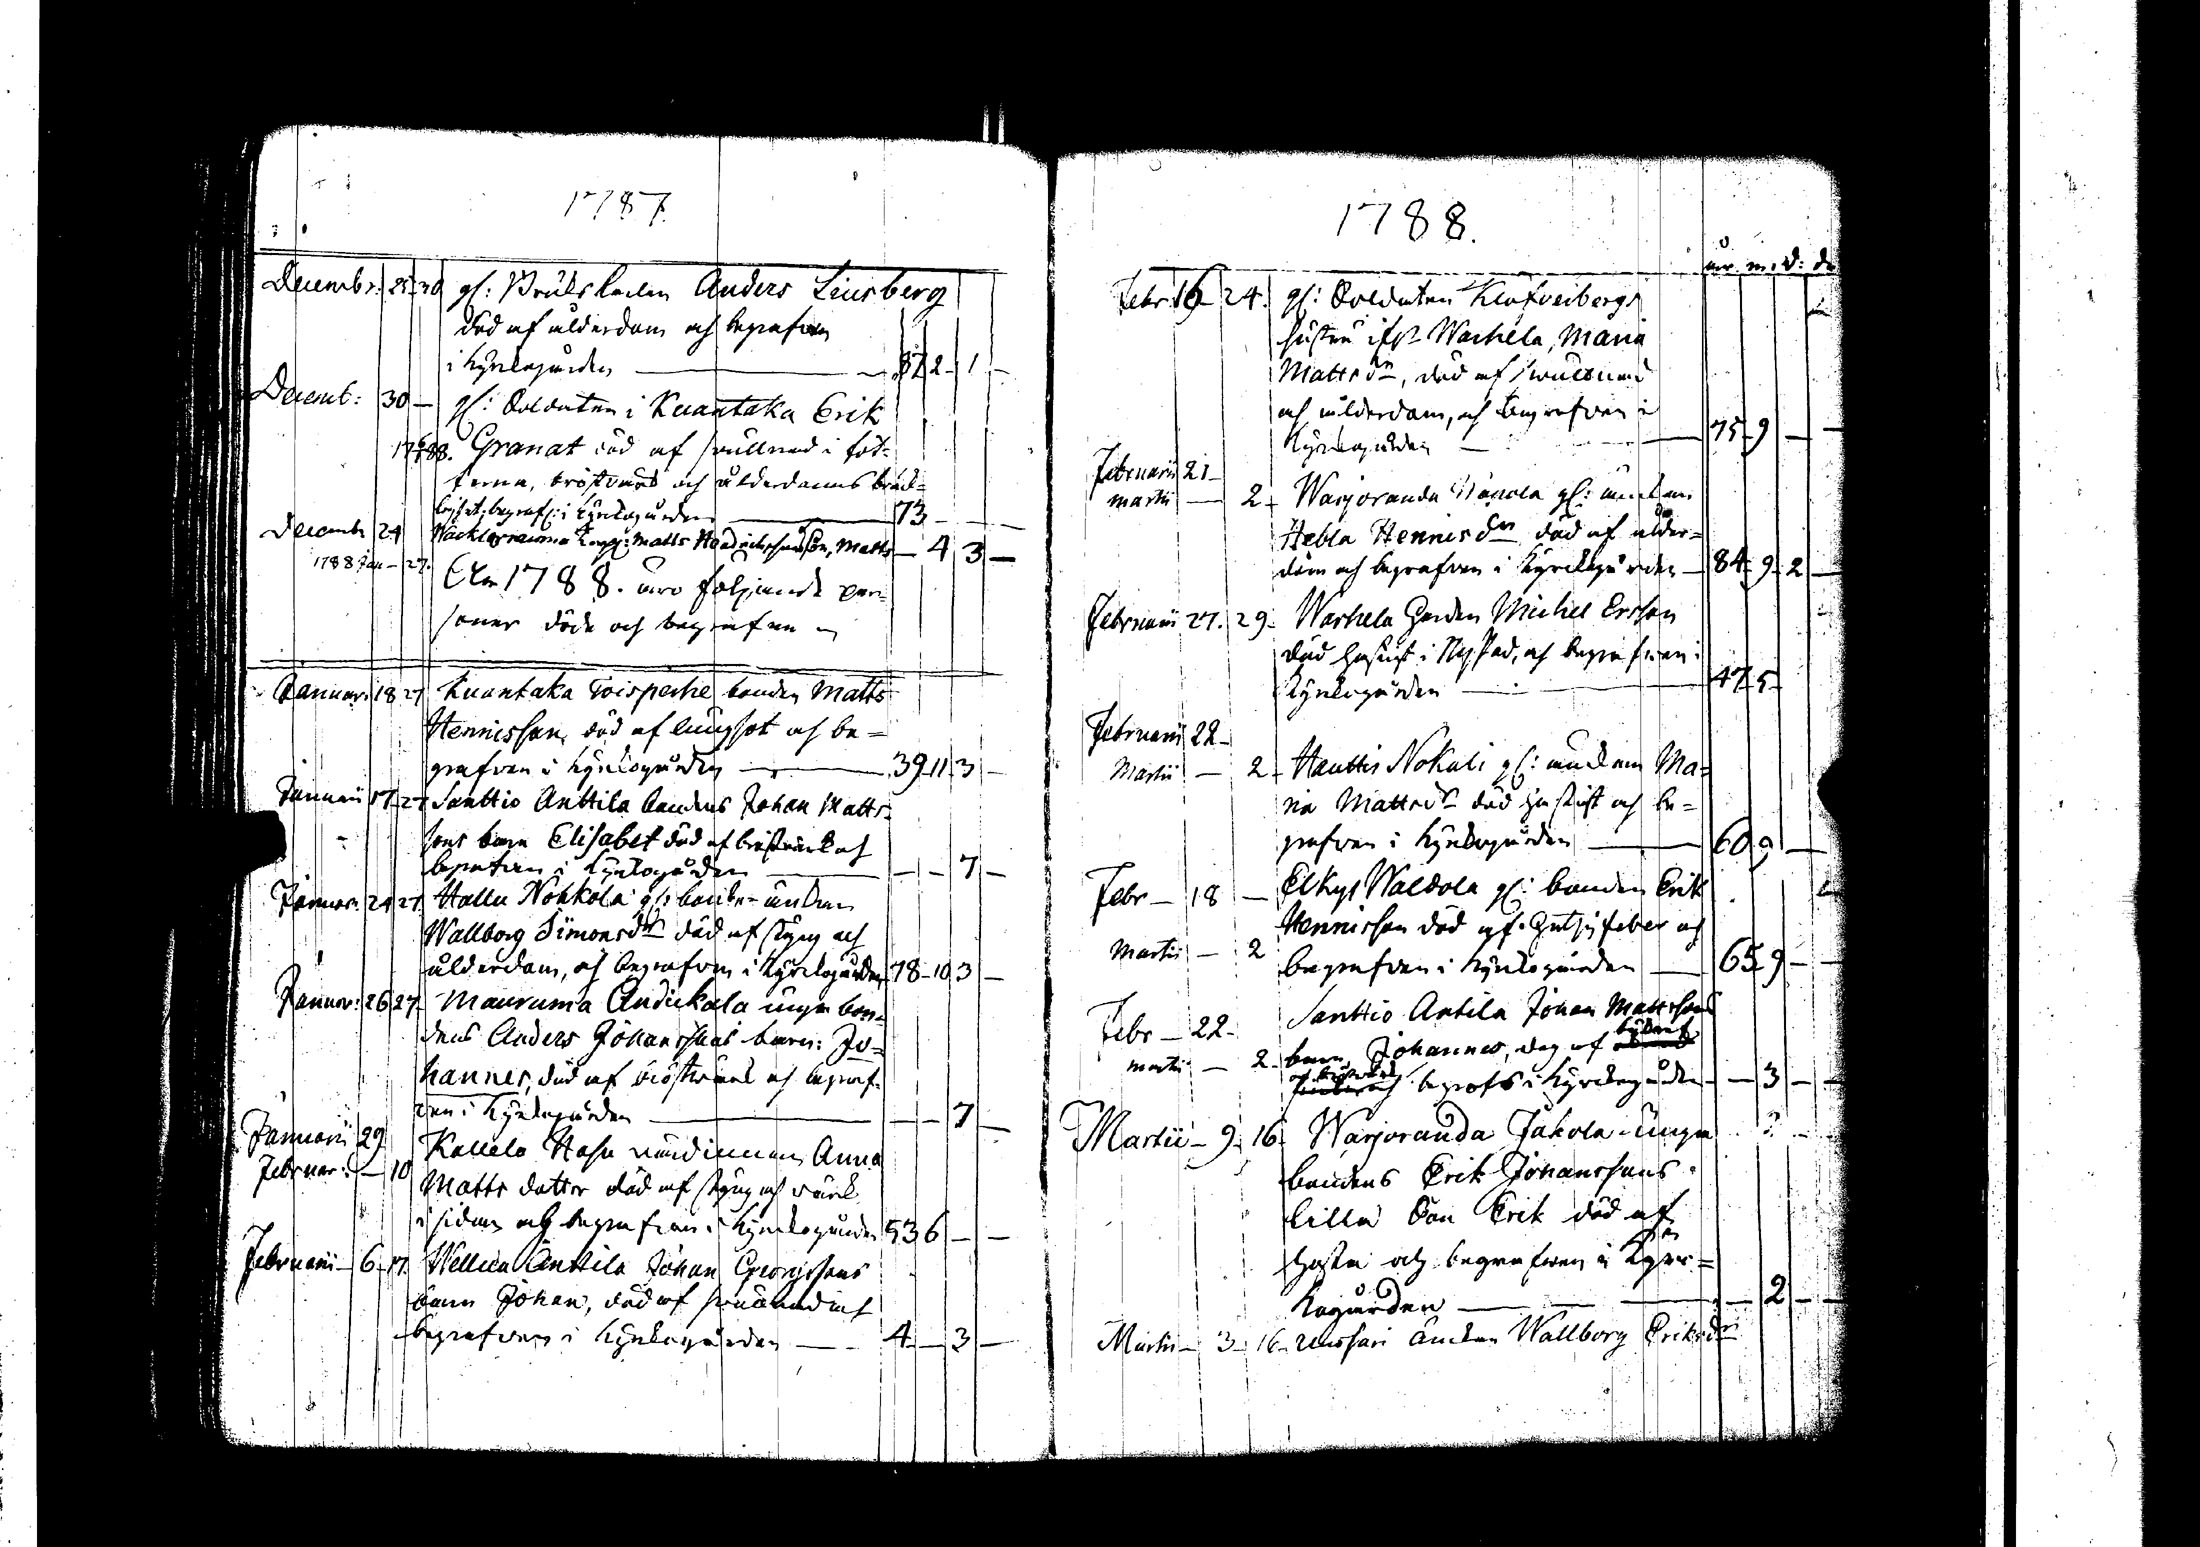 1787.
Decembr: 25 30 gl: Anders Linsberg
död af ålderdom och begrafven
i Kyrkogården — 87 2 1 —
Decemb: 30 — gl: Soldaten i Kuantaka Erik
1788. Granat död af svullnad i föt-
terna, bröstvärk och ålderdoms bräck-
lighet, begrafz: i Kyrkogården — 73 — —
Decembr 24 Matts son, Matts — 4 3 —
1788 Jan — 27. Åhr 1788. äro följande per-
soner döde och begrafne
Januari 18 27 Kuantaka Toisperhe bonden Matts
Hennisson, död af lungsot och be=
grafven i Kyrkogården — 39 11 3 —
Januarii 17 27 Santtio Anttila bondens Johan Matts-
sons barn Elisabet död af bröstvärk och
begrafven i Kyrkogården — — — 7 —
Januar: 24 27 Hallu Nohkola gl: bonde-änkan
Wallborg Simonsdr död af styng och
ålderdom, och begrafven i Kyrkogården 78 — 10 3 —
Januar: 26 27 Mauruma Andickala unga bon-
dens Anders Johanssons barn: Jo=
hannes, död af bröstvärk och begraf-
ven i Kyrkogården — — — 7 —
Januarii 29 Kallela Hasu Anna
Februar: — 10 Matts dotter död af styng och värk
i sidan och begrafven i Kyrkogården 53 6 — —
Februarii — 6 17. Wellua Anttila Johan Georgssons
barn Johan, död af svullnad och
begrafven i Kyrkogården — 4 — 3 —
1788.
år. m: d:
Febr 16 24. gl: Soldaten
hustru ifr. Warhela, Maria
Mattsdr, död af svullnad
och ålderdom, och begrafven i
Kyrkogården — 75 9 — —
Februarii 21 —
martii — 2 — Warjoranda gl: änkan
Hebla Hennisdr död af ålder=
dom och begrafven i Kyrkogården — 84 9 2 —
Februarii 27. 29. Warhela bonden Michel Ersson
död hastigt i Nystad, och begrafven i
Kyrkogården — 47 5
Februarii 22 —
Martii — 2 — Hauttis Nokali gl: änkan Ma-
ria Mattsdr död hastigt och be=
grafven i Kyrkogården — 60 9 —
Febr — 18 — Elkys Waldola gl: bonden Erik
Hennisson död af feber och
Martii — 2 begrafven i Kyrkogården — 65 9 — —
Febr — 22 — Santtio Antila Johan Mattssons
martii — 2 barn, Johannes, dog af
och begrofs i Kyrkogården — — 3 — —
Martii — 9 — 16 Warjoranda Jakola unga
bondens Erik Johanssons
lilla Son Erik död af
hosta och begrafven i Kyr=
kogården — — 2 — —
Martii — 3 — 16 — änkan Wallborg Eriksdr